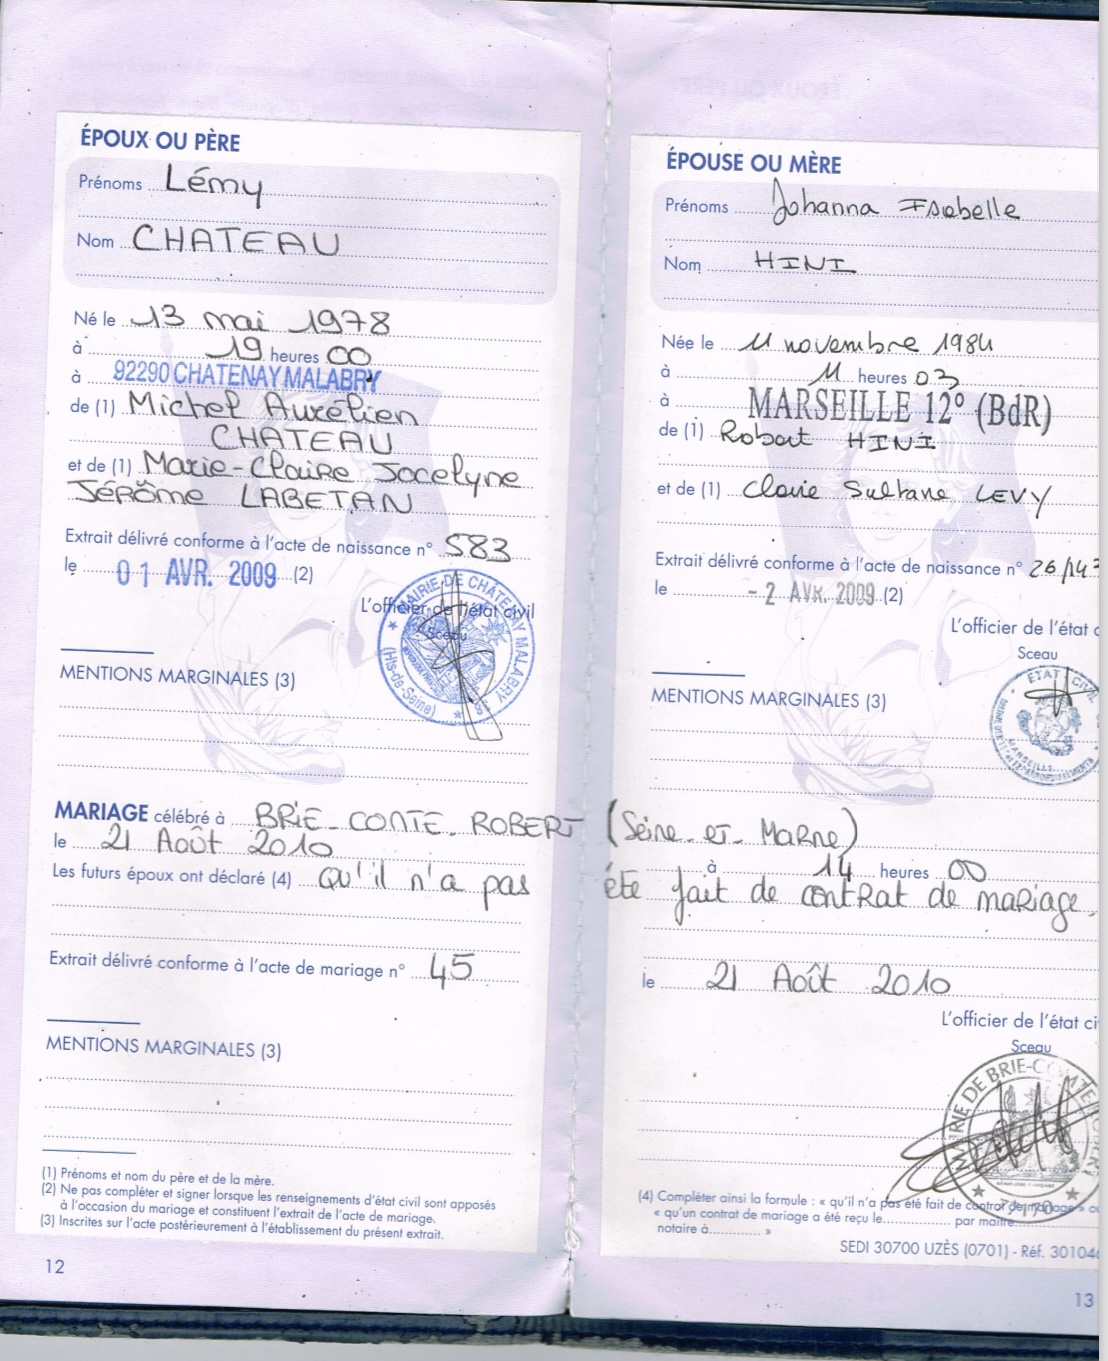 ÉPOUX OU PÈRE
Prénoms Lémy
Nom CHATEAU
Né le 13 mai 1978
à 19 heures 00
à 92290 CHATENAY MALABRY
de (1) Michel Aurélien
CHATEAU
et de (1) Marie-Claire Jocelyne
Jérôme LABETAN
Extrait délivré conforme à l'acte de naissance n° 583
le 01 AVR. 2009 (2)
L'officier de l'état civil
Sceau
MAIRIE DE CHÂTENAY MALABRY
(Hts-de-Seine)
MENTIONS MARGINALES (3)
ÉPOUSE OU MÈRE
Prénoms Johanna Isabelle
Nom HINI
Née le 11 novembre 1984
à 11 heures 03
à MARSEILLE 12° (BdR)
de (1) Robert HINI
et de (1) Clarie Sultane LEVY
Extrait délivré conforme à l'acte de naissance n° 26/143
le - 2 AVR. 2009 (2)
L'officier de l'état c
Sceau
ETAT CIVIL
MARSEILLE
MENTIONS MARGINALES (3)
MARIAGE célébré à BRIE-CONTE-ROBERT (Seine-et-Marne)
le 21 Août 2010 à 14 heures 00
Les futurs époux ont déclaré (4) qu'il n'a pas été fait de contrat de mariage.
Extrait délivré conforme à l'acte de mariage n° 45
le 21 Août 2010
L'officier de l'état ci
Sceau
MAIRIE DE BRIE-COMTE-ROBERT
77170
MENTIONS MARGINALES (3)
(1) Prénoms et nom du père et de la mère.
(2) Ne pas compléter et signer lorsque les renseignements d'état civil sont apposés
à l'occasion du mariage et constituent l'extrait de l'acte de mariage.
(3) Inscrites sur l'acte postérieurement à l'établissement du présent extrait.
12
(4) Compléter ainsi la formule : « qu'il n'a pas été fait de contrat de mariage » ou
« qu'un contrat de mariage a été reçu le............... par maître
notaire à............ »
SEDI 30700 UZÈS (0701) - Réf. 301046
13